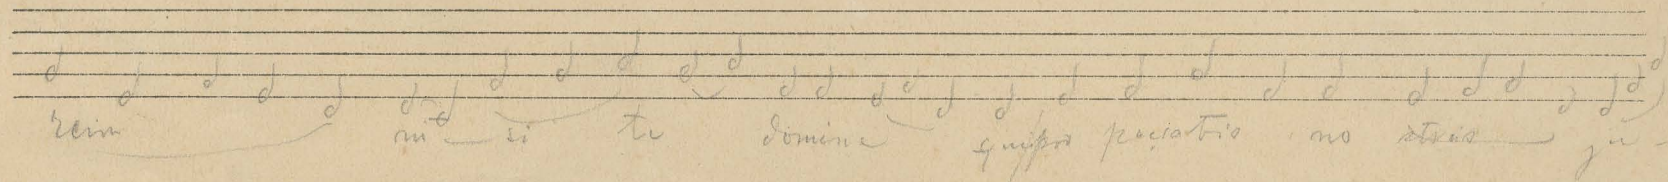 rem ni si te domine qui pro peccatis no stris ju